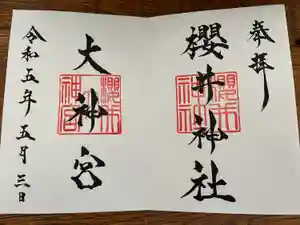 奉拝
櫻井神社
大神宮
令和五年五月三日